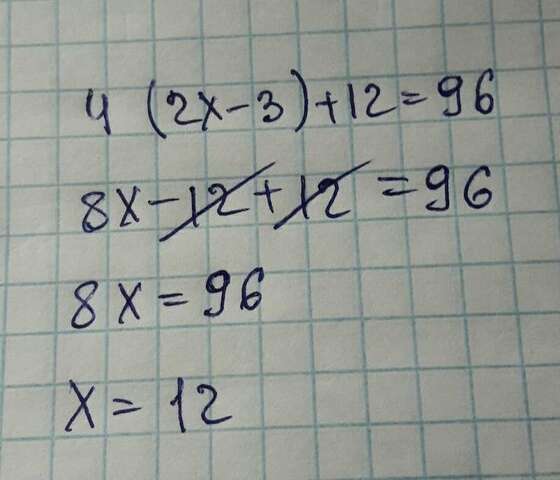 4 (2x-3)+12=96
8x-12+12=96
8x=96
x=12